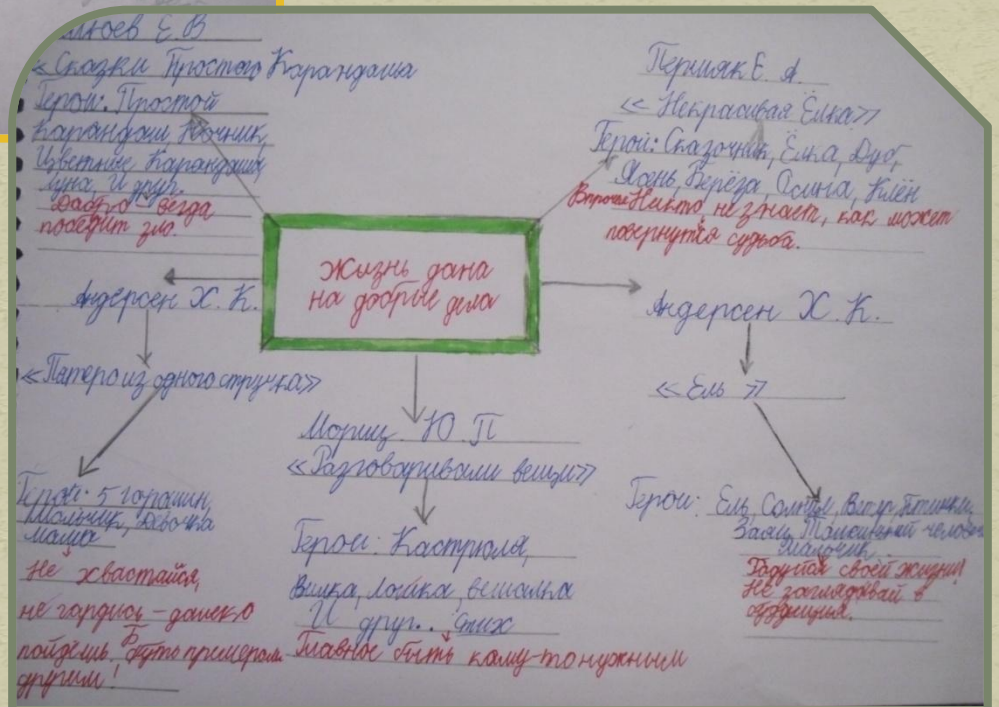 Е. В
«Сказки Простого Карандаша
Герои: Простой
Карандаш Ночник,
Цветные Карандаши,
Луна, И друг.
Добро всегда
победит зло.
Пермяк Е. А.
«Некрасивая Ёлка»
Герои: Сказочник, Ёлка, Дуб,
Ясень, Берёза, Осина, Клён
Никто не знает, как может
повернутся судьба.
Жизнь дана
на добрые дела
Андерсен Х. К.
«Пятеро из одного стручка»
Герои: 5 горошин,
Мальчик, Девочка
Мама
Не хвастайся,
не гордись - далеко
пойдёшь. Будь примером
другим!
Мориц Ю. П
«Разговаривали вещи»
Герои: Кастрюля,
Вилка, Ложка, вешалка
И друг.. Стих
Главное быть кому-то нужным
Андерсен Х. К.
«Ель»
Герои: Ель, Солнце, Ветер, Птички,
Заяц, Маленький
Мальчик
Радуйся своей жизни!
Не заглядывай в